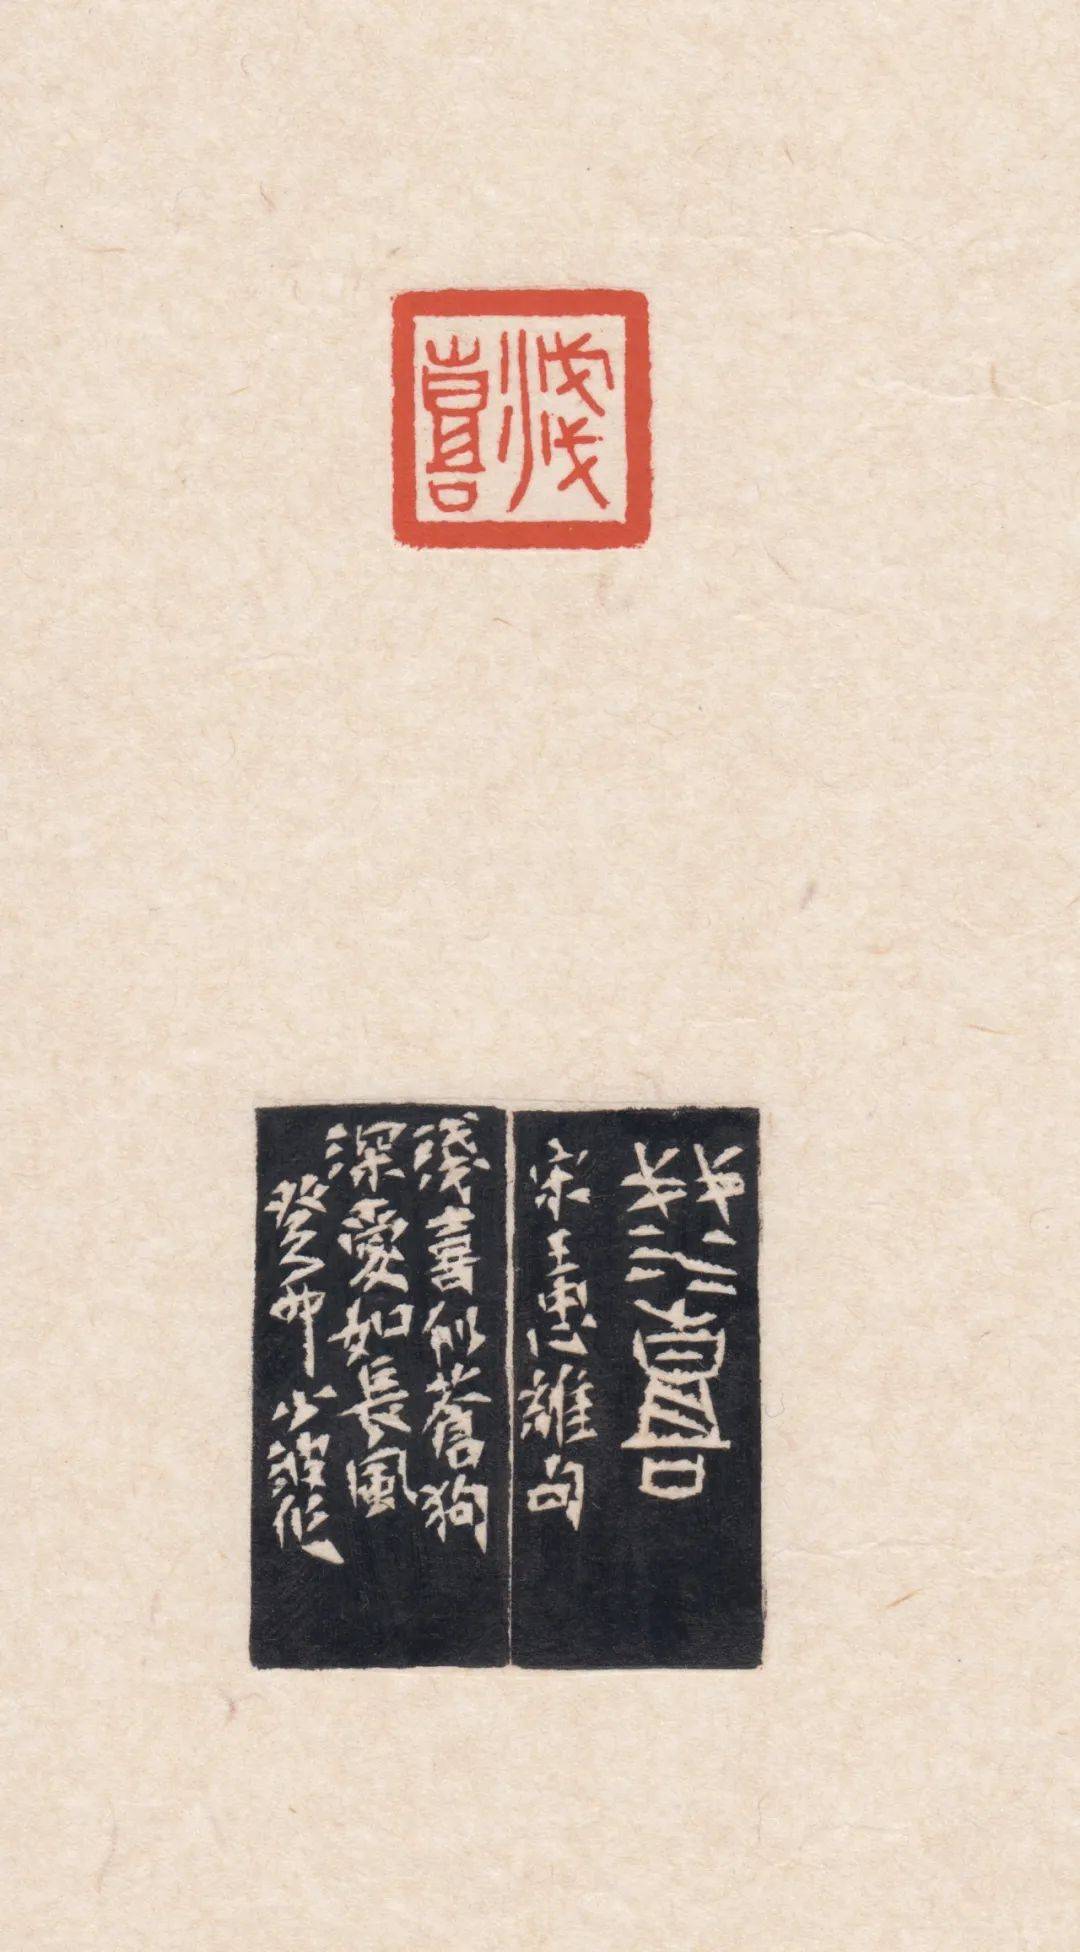 淺喜
淺喜
宋王惠離句
淺喜似蒼狗
深愛如長風
癸卯少波作